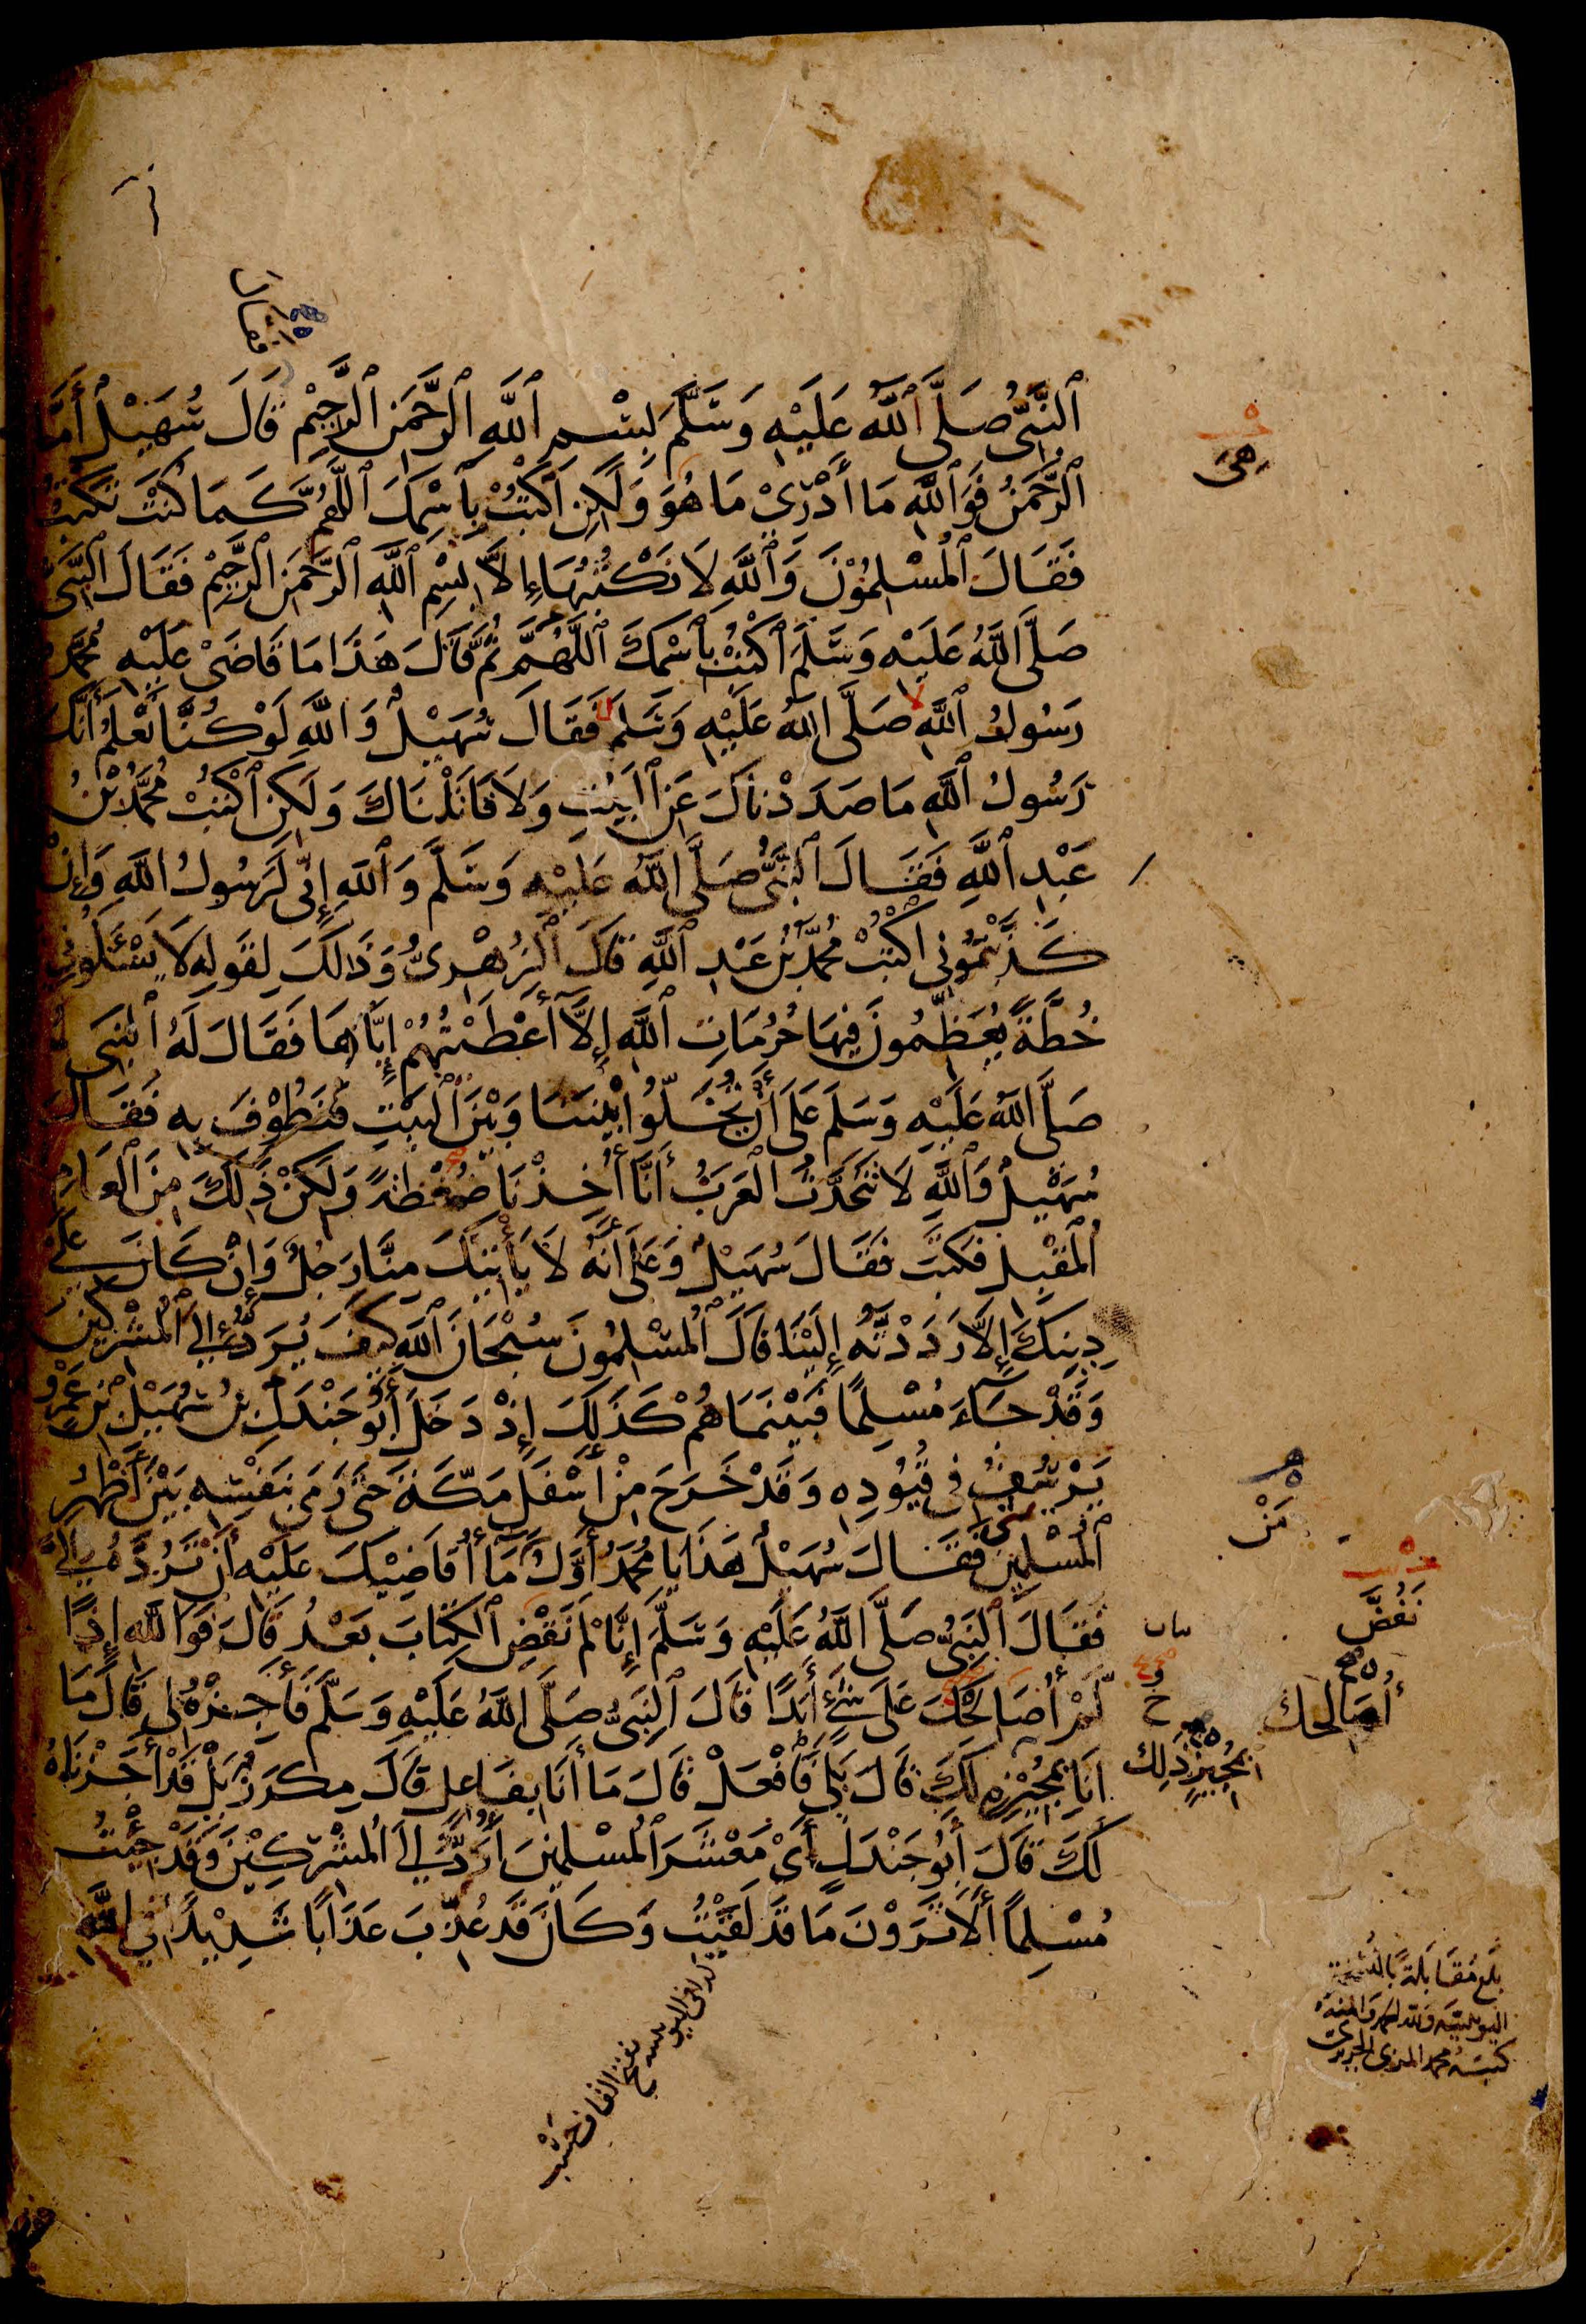 فقال
ٱلنَّبِىُّ صَلَّى ٱللَّهُ عَلَيْهِ وَسَلَّمَ بِسْمِ ٱللَّهِ ٱلرَّحْمَنِ ٱلرَّحِيْمِ قَالَ سُهَيْلٌ أَمَّا
هِىَ
ٱلرَّحْمَنُ فَوَٱللَّهِ مَا أَدْرِىْ مَا هُوَ وَلَكِنِ ٱكْتُبْ بِٱسْمِكَ ٱللَّهُمَّ كَمَا كُنْتَ تَكْتُبُ
فَقَالَ ٱلْمُسْلِمُوْنَ وَٱللَّهِ لَا نَكْتُبُهَا إِلاَّ بِسْمِ ٱللَّهِ ٱلرَّحْمَنِ ٱلرَّحِيْمِ فَقَالَ ٱلنَّبِىُّ
صَلَّى ٱللَّهُ عَلَيْهِ وَسَلَّمَ ٱكْتُبْ بِٱسْمِكَ ٱللَّهُمَّ ثُمَّ قَالَ هَذَا مَا قَاضَىْ عَلَيْهِ مُحَمَّدٌ
رَسُولُ ٱللَّهِ صَلَّى ٱللَّهُ عَلَيْهِ وَسَلَّمَ فَقَالَ سُهَيْلٌ وَٱللَّهِ لَوْ كُنَّا نَعْلَمُ أَنَّكَ
رَسُولُ ٱللَّهِ مَا صَدَدْنَاكَ عَنِ ٱلْبَيْتِ وَلَا قَاتَلْنَاكَ وَلَكِنِ ٱكْتُبْ مُحَمَّدُ بْنُ
عَبْدِ ٱللَّهِ فَقَالَ ٱلنَّبِىُّ صَلَّى ٱللَّهُ عَلَيْهِ وَسَلَّمَ وَٱللَّهِ إِنِّى لَرَسُولُ ٱللَّهِ وَإِنْ
كَذَّبْتُمُونِى ٱكْتُبْ مُحَمَّدُ بْنُ عَبْدِ ٱللَّهِ قَالَ ٱلزُّهْرِىُّ وَذَالِكَ لِقَوْلِهِ لَا يَسْئَلُونِى
خُطَّةً يُعَظِّمُونَ فِيهَا حُرُمَاتِ ٱللَّهِ إِلاَّ أَعْطَيْتُهُمْ إِيَّاهَا فَقَالَ لَهُ ٱلنَّبِى
صَلَّى ٱللَّهُ عَلَيْهِ وَسَلَّمَ عَلَى أَنْ تُخَلُّوا بَيْنَنَا وَبَيْنَ ٱلْبَيْتِ فَنَطُوْفَ بِهِ فَقَالَ
سُهَيْلٌ وَٱللَّهِ لَا تَتَحَدَّثُ ٱلْعَرَبُ أَنَّا أُخِذْنَا ضُغْطَةً وَلَكِنْ ذَلِكَ مِنَ ٱلْعَامِ
ٱلْمُقْبِلِ فَكَتَبَ فَقَالَ سُهَيْلٌ وَعَلَى أَنَّهُ لَا يَأْتِيْكَ مِنَّا رَجُلٌ وَإِنْ كَانَ عَلَى
دِيْنِكَ إِلاَّ رَدَدْتَهُ إِلَيْنَا قَالَ ٱلْمُسْلِمُونَ سُبْحَانَ ٱللَّهِ كَيْفَ يُرَدُّ إِلَى ٱلْمُشْرِكِينَ
وَقَدْ جَاءَ مُسْلِمًا فَبَيْنَمَا هُمْ كَذَلِكَ إِذْ دَخَلَ أَبُو جَنْدَلِ بْنُ سُهَيْلِ بْنِ عَمْرٍو
يَرْسُفُ فِى قُيُودِهِ وَقَدْ خَرَجَ مِنْ أَسْفَلِ مَكَّةَ حَتَّى رَمَى بِنَفْسِهِ بَيْنَ أَظْهُرِ
مَنْ
ٱلْمُسْلِمِينَ فَقَالَ سُهَيْلٌ هَذَا يَا مُحَمَّدُ أَوَّلُ مَا أُقَاضِيْكَ عَلَيْهِ أَنْ تَرُدَّهُ إِلَىَّ
فَقَالَ ٱلنَّبِىُّ صَلَّى ٱللَّهُ عَلَيْهِ وَسَلَّمَ إِنَّا لَمْ نَقْضِ ٱلْكِتَابَ بَعْدُ قَالَ فَوَٱللَّهِ إِذًا
نَفُضَّ
لَمْ أُصَالِحْكَ عَلَى شَىْءٍ أَبَدًا قَالَ ٱلنَّبِىُّ صَلَّى ٱللَّهُ عَلَيْهِ وَسَلَّمَ فَأَجِزْهُ لِى قَالَ مَا
أُصَالحك
أَنَا بِمُجِيْزِهِ لَكَ قَالَ بَلَى فَافْعَلْ قَالَ مَا أَنَا بِفَاعِلٍ قَالَ مِكْرَزٌ بَلْ قَدْ أَجَزْنَاهُ
بِمُجِيْزِ ذَلِكَ
لَكَ قَالَ أَبُو جَنْدَلٍ أَىْ مَعْشَرَ ٱلْمُسْلِمِينَ أُرَدُّ إِلَى ٱلْمُشْرِكِيْنَ وَقَدْ جِئْتُ
مُسْلِمًا أَلَا تَرَوْنَ مَا قَدْ لَقِيْتُ وَكَانَ قَدْ عُذِّبَ عَذَابًا شَدِيْدًا فِى ٱللَّهِ
كذا فى اليونينية بفتح القاف حسْب
بلغ مقابلة بالنسخة
اليونينية ولله الحمد والمنة
كتبه محمد المزى الحريرى